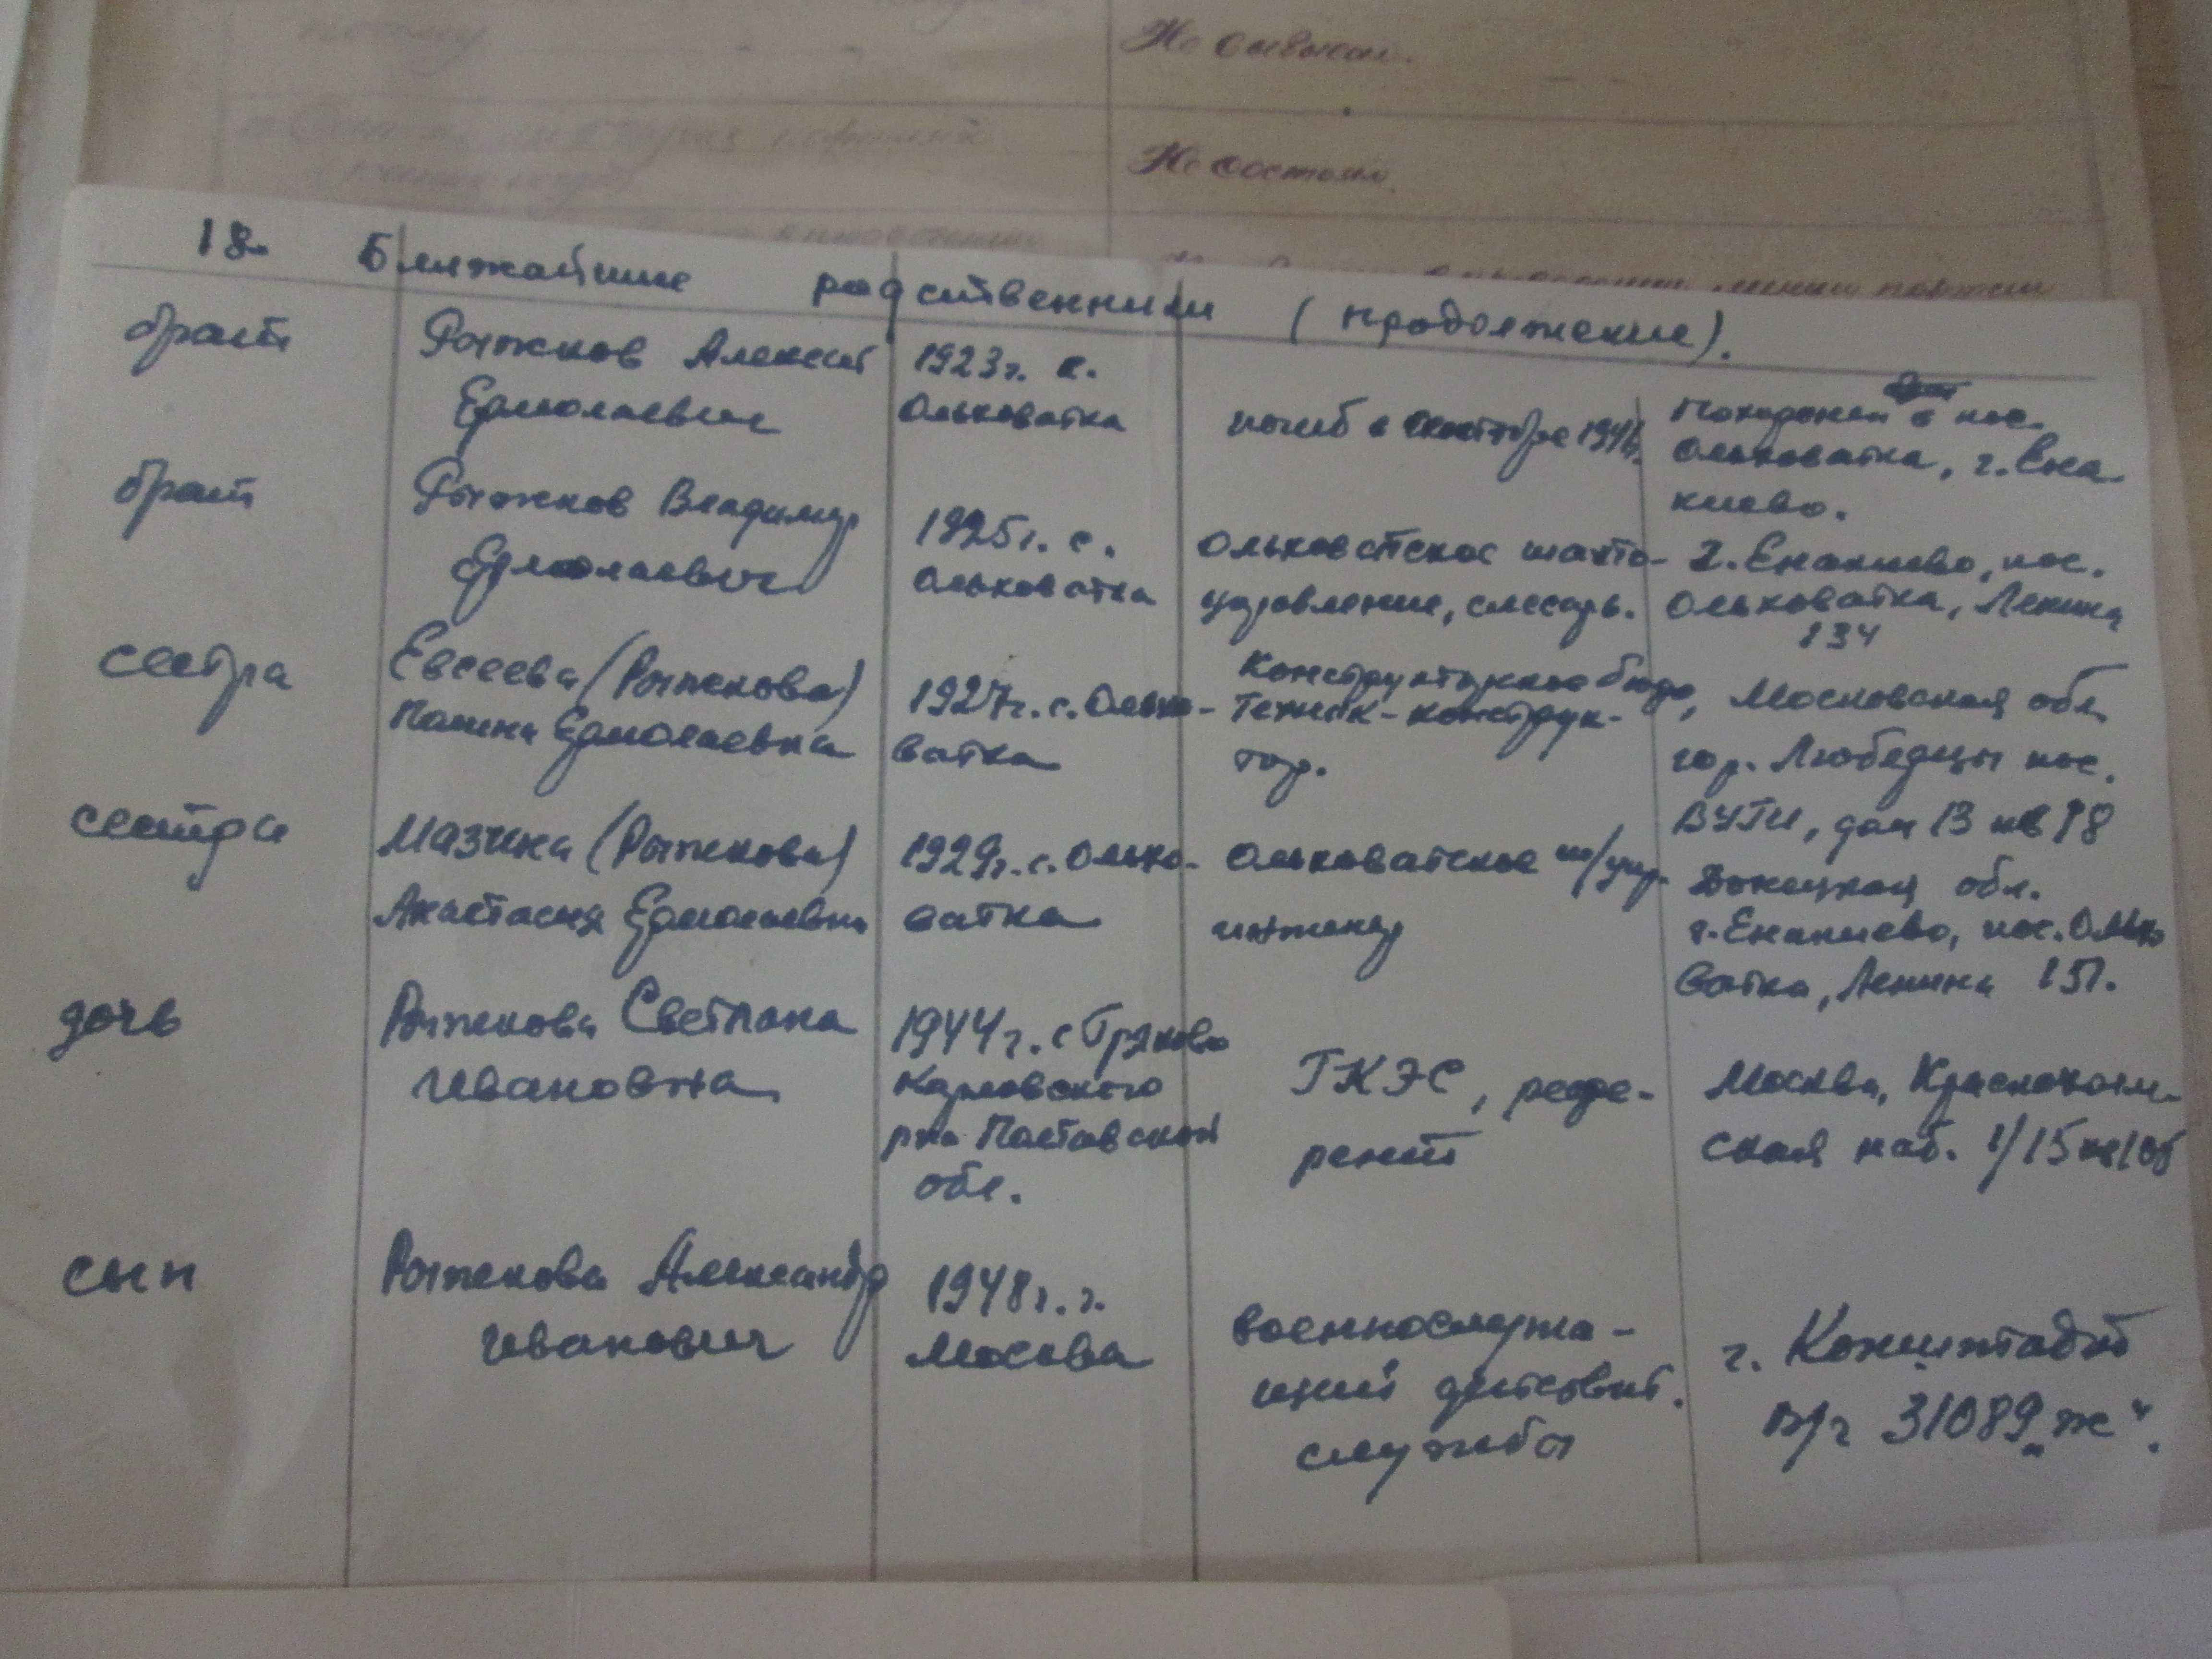 Не бывал.
Не состоял.
18. Ближайшие родственники (продолжение).
брат
Рыжков Алексей
Ермолаевич
1923г. с.
Ольховатка
погиб в 194
Похоронен в пос.
Ольховатка, г. Ена-
киево.
брат
Рыжков Владимир
Ермолаевич
1925г. с.
Ольховатка
Ольховатское шахто-
управление, слесарь.
г. Енакиево, пос.
Ольховатка, Ленина
134
сестра
Евсеева (Рыжкова)
Полина Ермолаевна
1927г. с. Ольхо-
ватка
Конструкторское бюро,
Техник-конструк-
тор.
Московская обл.
гор. Люберцы пос.
ВУГИ, дом 13 кв 18
сестра
Мазчина (Рыжкова)
Анастасия Ермолаевна
1929г. с. Ольхо-
ватка
Ольховатское ш/упр.
инженер
Донецкая обл.
г. Енакиево, пос. Ольхо
ватка, Ленина 151.
дочь
Рыжкова Светлана
Ивановна
1944г. с Гряково
Карловского
р-на Полтавской
обл.
ГКЭС, рефе-
рент
Москва, Краснохолм-
ская наб. 1/15
сын
Рыжкова Александр
Иванович
1948г. г.
Москва
военнослужа-
щий действит.
службы
г. Конштадт
В/ч 31089 „ж“.